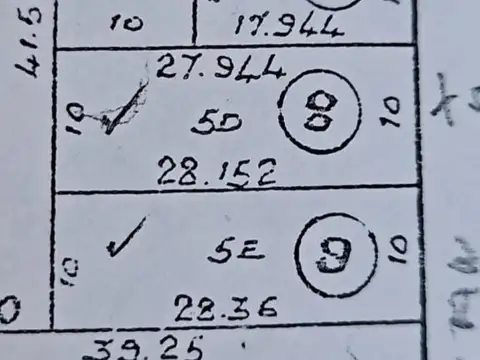 41.5
10
17.944
27.944
10
5D
8
10
28.152
10
5E
9
10
28.36
39.25